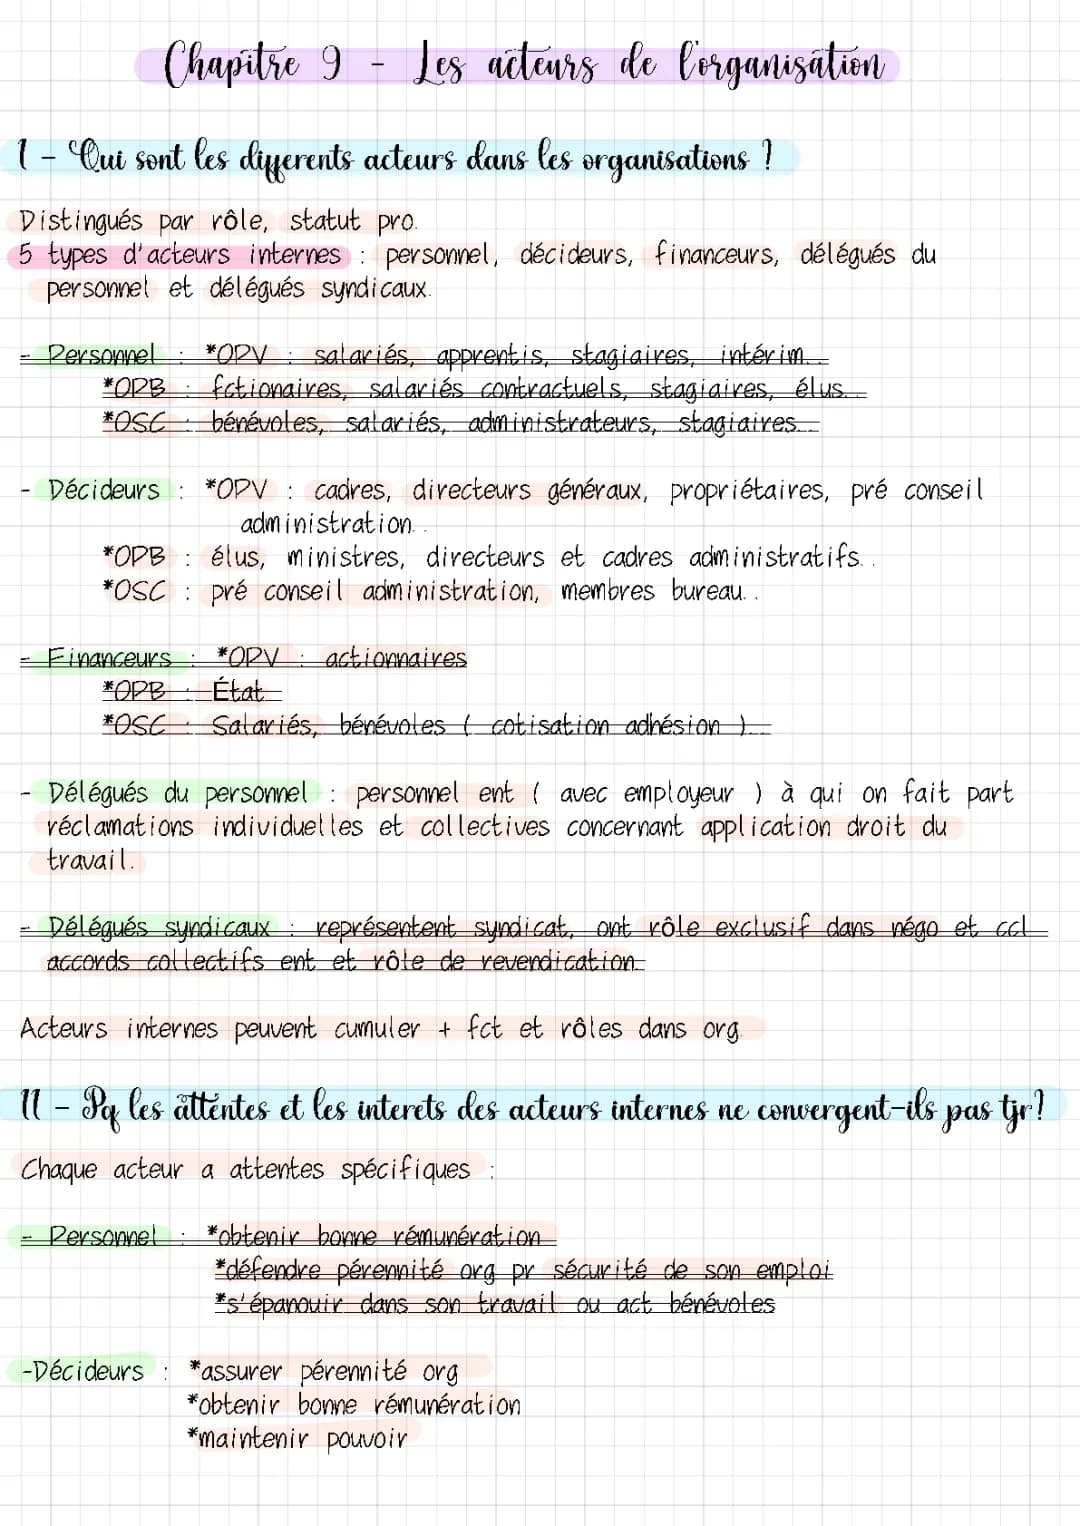 Chapitre 9 - Les acteurs de l'organisation
I - Qui sont les differents acteurs dans les organisations ?
Distingués par rôle, statut pro.
5 types d'acteurs internes : personnel, décideurs, financeurs, délégués du
personnel et délégués syndicaux.
- Personnel : *OPV : salariés, apprentis, stagiaires, intérim..
*OPB : fctionaires, salariés contractuels, stagiaires, élus..
*OSC : bénévoles, salariés, administrateurs, stagiaires..
- Décideurs : *OPV : cadres, directeurs généraux, propriétaires, pré conseil
administration..
*OPB : élus, ministres, directeurs et cadres administratifs..
*OSC : pré conseil administration, membres bureau..
- Financeurs : *OPV : actionnaires
*OPB : État
*OSC : Salariés, bénévoles ( cotisation adhésion )..
- Délégués du personnel : personnel ent ( avec employeur ) à qui on fait part
réclamations individuelles et collectives concernant application droit du
travail.
- Délégués syndicaux : représentent syndicat, ont rôle exclusif dans négo et ccl
accords collectifs ent et rôle de revendication.
Acteurs internes peuvent cumuler + fct et rôles dans org.
II - Pq les attentes et les interets des acteurs internes ne convergent-ils pas tjr?
Chaque acteur a attentes spécifiques :
- Personnel : *obtenir bonne rémunération
*défendre pérennité org pr sécurité de son emploi
*s'épanouir dans son travail ou act bénévoles
-Décideurs : *assurer pérennité org
*obtenir bonne rémunération
*maintenir pouvoir